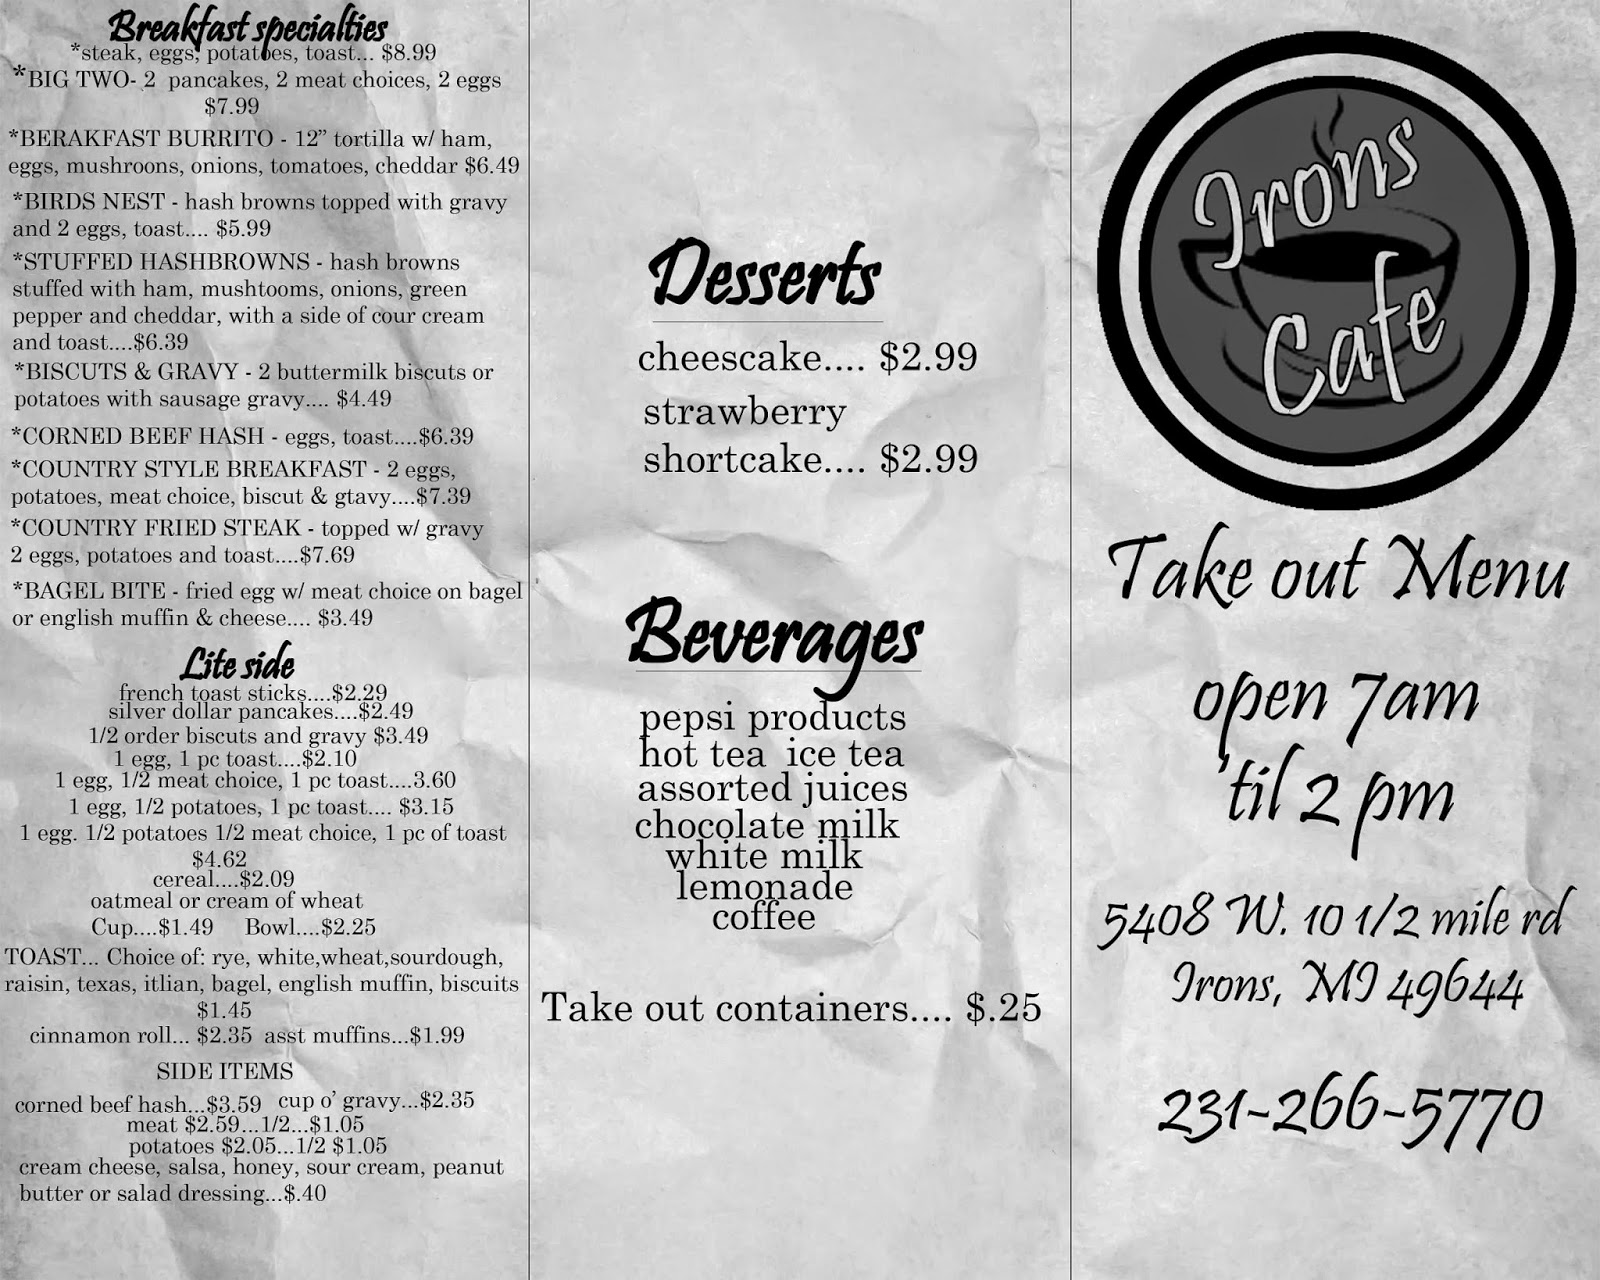 Breakfast specialties
*steak, eggs, potatoes, toast... $8.99
*BIG TWO- 2 pancakes, 2 meat choices, 2 eggs
$7.99
*BERAKFAST BURRITO - 12” tortilla w/ ham,
eggs, mushroons, onions, tomatoes, cheddar $6.49
*BIRDS NEST - hash browns topped with gravy
and 2 eggs, toast.... $5.99
*STUFFED HASHBROWNS - hash browns
stuffed with ham, mushtooms, onions, green
pepper and cheddar, with a side of cour cream
and toast....$6.39
*BISCUTS & GRAVY - 2 buttermilk biscuts or
potatoes with sausage gravy.... $4.49
*CORNED BEEF HASH - eggs, toast....$6.39
*COUNTRY STYLE BREAKFAST - 2 eggs,
potatoes, meat choice, biscut & gtavy....$7.39
*COUNTRY FRIED STEAK - topped w/ gravy
2 eggs, potatoes and toast....$7.69
*BAGEL BITE - fried egg w/ meat choice on bagel
or english muffin & cheese.... $3.49
Lite side
french toast sticks....$2.29
silver dollar pancakes....$2.49
1/2 order biscuts and gravy $3.49
1 egg, 1 pc toast....$2.10
1 egg, 1/2 meat choice, 1 pc toast....3.60
1 egg, 1/2 potatoes, 1 pc toast.... $3.15
1 egg. 1/2 potatoes 1/2 meat choice, 1 pc of toast
$4.62
cereal....$2.09
oatmeal or cream of wheat
Cup....$1.49 Bowl....$2.25
TOAST... Choice of: rye, white,wheat,sourdough,
raisin, texas, itlian, bagel, english muffin, biscuits
$1.45
cinnamon roll... $2.35 asst muffins...$1.99
SIDE ITEMS
corned beef hash...$3.59 cup o’ gravy...$2.35
meat $2.59...1/2...$1.05
potatoes $2.05...1/2 $1.05
cream cheese, salsa, honey, sour cream, peanut
butter or salad dressing...$.40
Desserts
cheescake.... $2.99
strawberry
shortcake.... $2.99
Beverages
pepsi products
hot tea ice tea
assorted juices
chocolate milk
white milk
lemonade
coffee
Take out containers.... $.25
Irons
Cafe
Take out Menu
open 7am
'til 2 pm
5408 W. 10 1/2 mile rd
Irons, MI 49644
231-266-5770